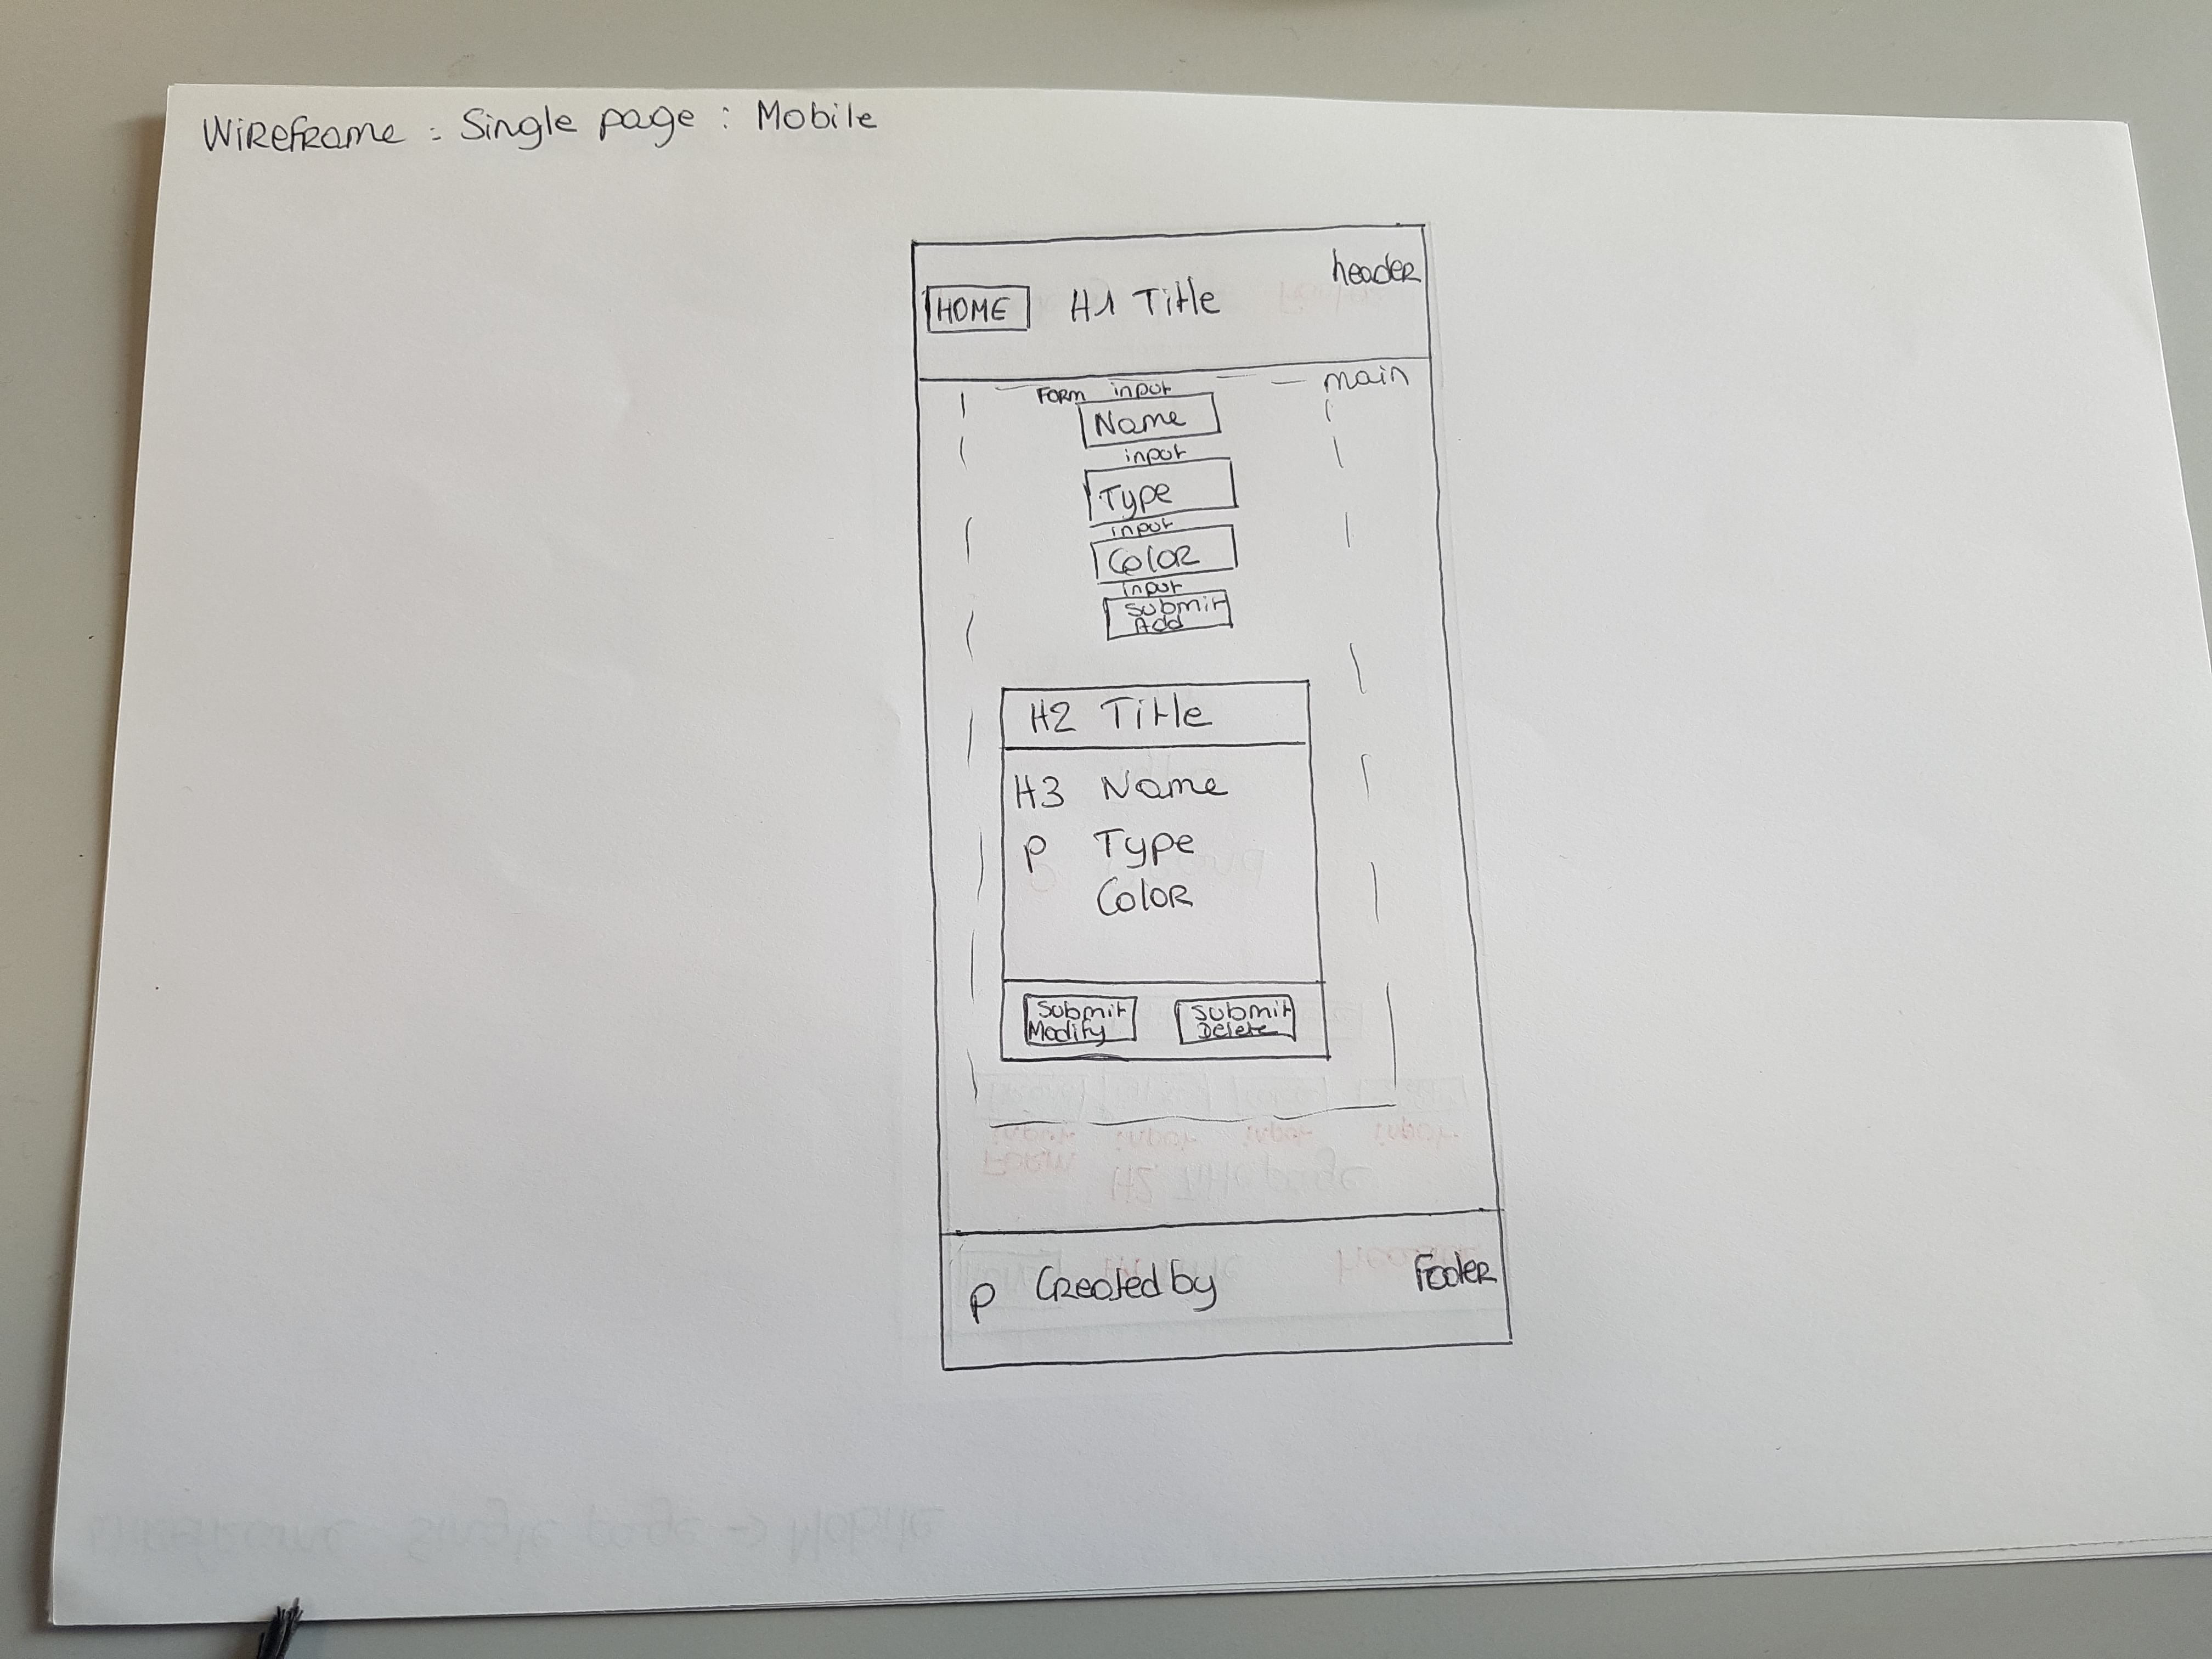 Wireframe : Single page : Mobile
header
HOME H1 Title
main
Form input
Name
input
Type
input
Color
input
Submit
Add
H2 Title
H3 Name
P Type
Color
Submit
Modify
Submit
Delete
P Created by
Footer